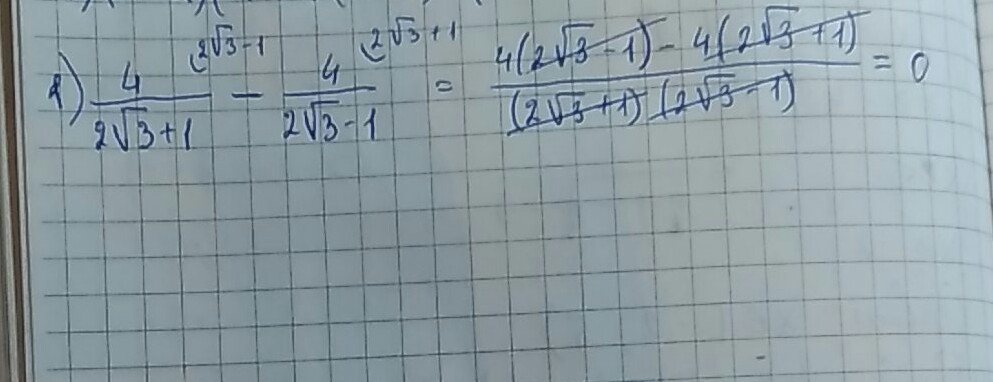 2) 4/(2√3+1) ^(2√3-1 - 4/(2√3-1) ^(2√3+1 = (4(2√3-1) - 4(2√3+1))/((2√3+1)(2√3-1)) = 0